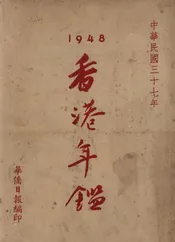 中華民國三十七年
1948
香港年鑑
華僑日報編印